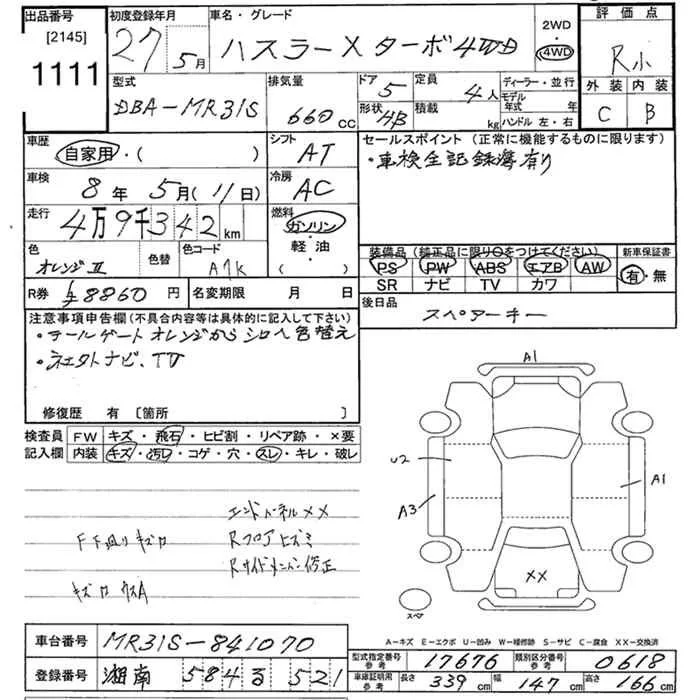 出品番号
[2145]
1111
初度登録年月
27 5月
車名・グレード
ハスラーX ターボ 4WD
2WD
4WD
評価点
R小
外装 内装
C B
型式
DBA-MR31S
排気量
660 cc
ドア 5
形状 4B
定員 4人
積載 kg
ディーラー・並行
モデル年式 年
ハンドル 左・右
車歴
自家用・( )
シフト
AT
車検
8年 5月(11日)
冷房
AC
走行
4万9千342km
燃料
ガソリン・軽油・( )
色
オレンジII
色替
色コード
R券 8860円
名変期限 月 日
セールスポイント (正常に機能するものに限ります)
・車検全記録簿有り
装備品 (純正品に限り○をつけてください)
PS PW ABS エアB AW
SR ナビ TV カワ
新車保証書
有・無
後日品
スペアーキー
注意事項申告欄(不具合内容等は具体的に記入して下さい)
・テールゲート オレンジから シロへ色替え
・ナビ、TV
修復歴 有 〔箇所 〕
検査員記入欄
FW キズ・飛石・ヒビ割・リペア跡・×要
内装 キズ・汚レ・コゲ・穴・スレ・キレ・破レ
エンドパネルXX
Rフロアヒズミ
Rサイドメンバー修正
A1
U2
A3
A1
XX
スペア
A-キズ E-エクボ U-凹み W-補修跡 S-サビ C-腐食 XX-交換済
車台番号 MR31S-841070
登録番号 湘南 584 る 521
型式指定番号参考 17676
類別区分番号参考 0618
車庫証明用参考 長さ 339cm 幅 147cm 高さ 166cm